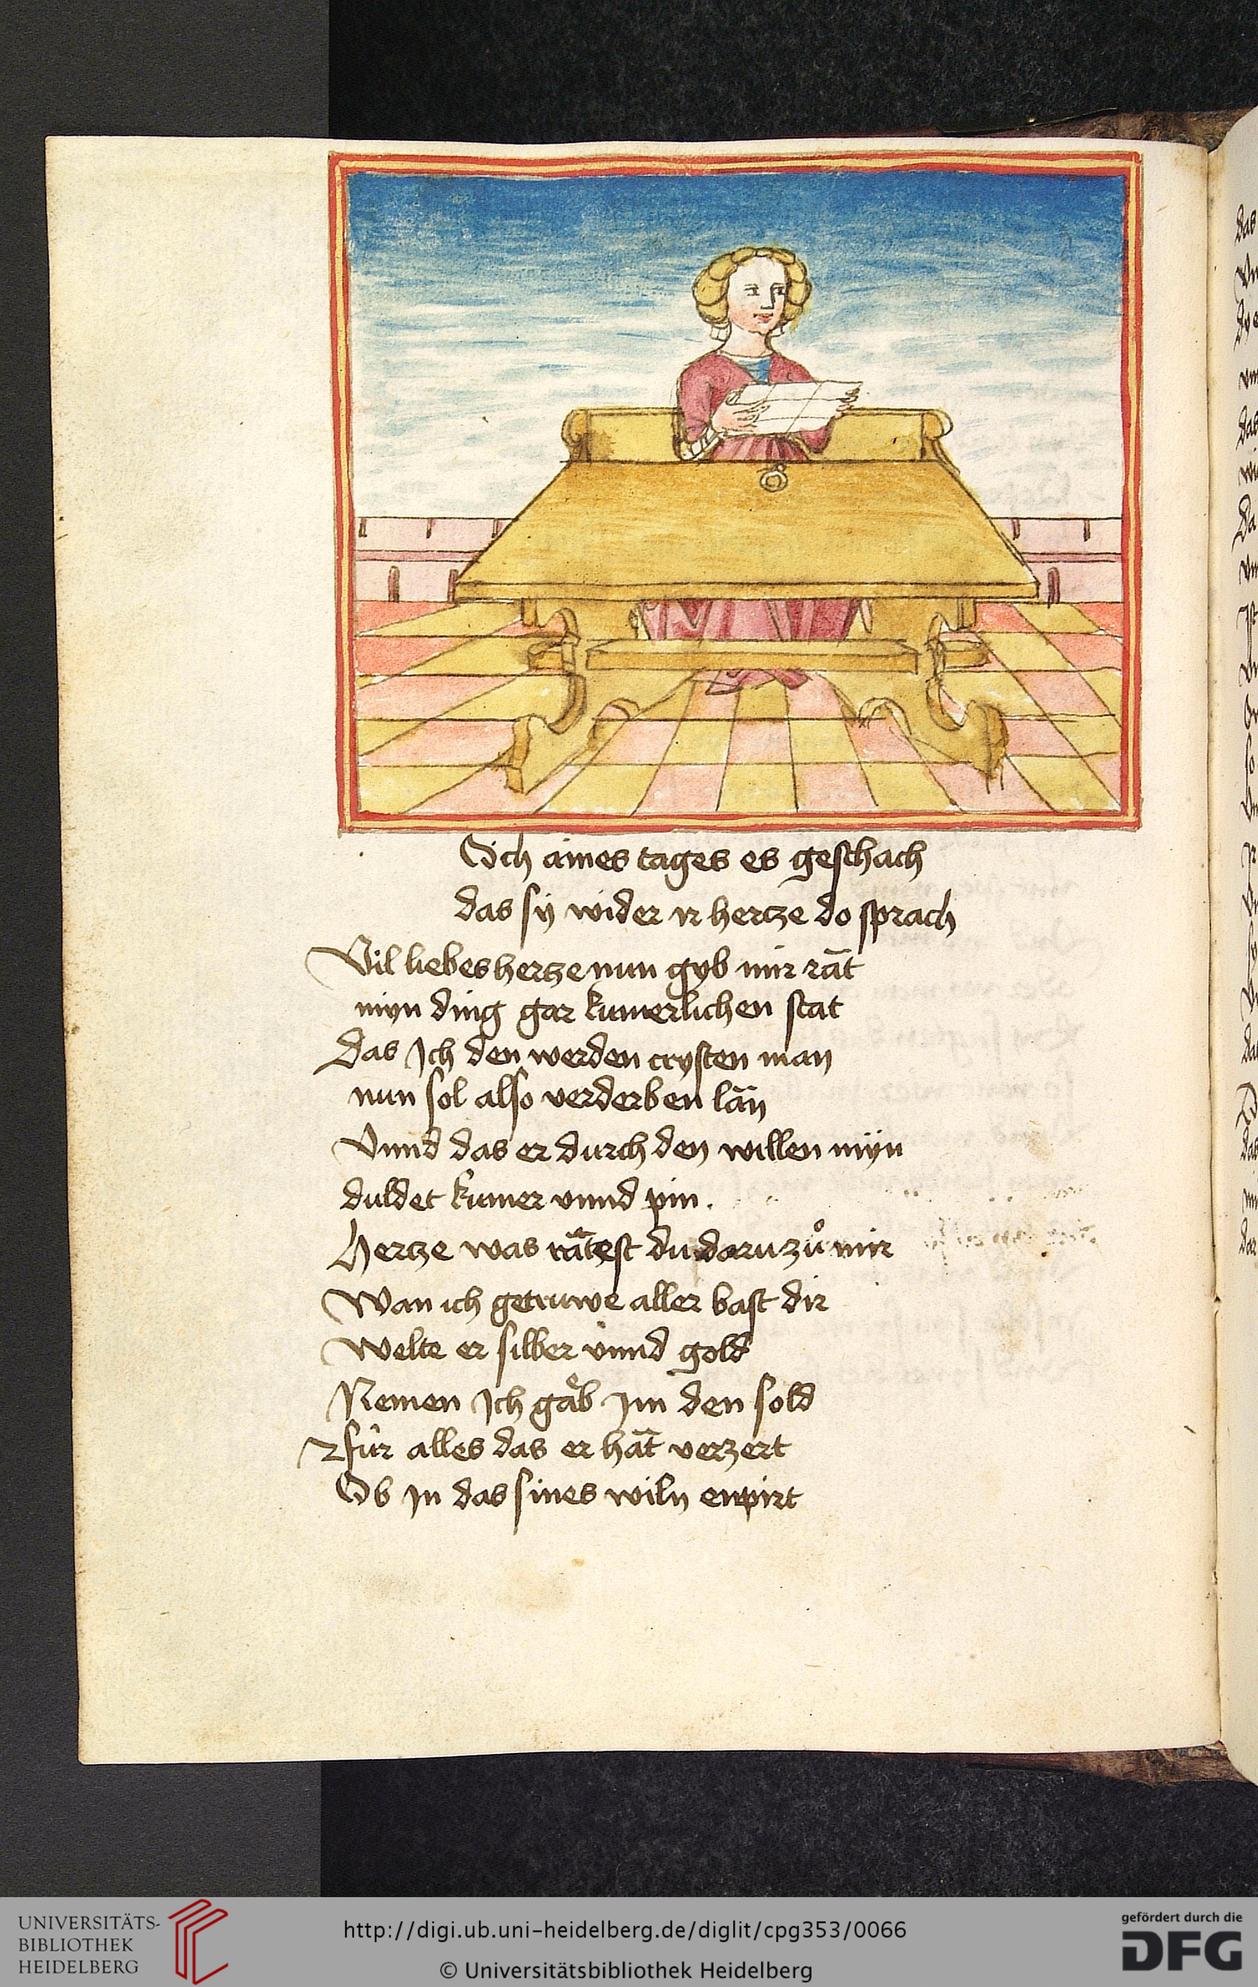 Och aines tages es geschach
das sy wider ir hertze do sprach
Vil liebes hertze nun gyb mir rät
myn ding gar kumerlichen stat
Das Ich den werden crysten man
nun sol also verderben län
Vnnd das er durch den willen myn
duldet kumer vnnd pin.
Hertze was rätest du darzuͦ mir
Wan ich getruwe aller bast dir
Welte er silber vnnd gold
Nemen Ich gäb Im den sold
für alles das er hät verzert
Ob In das sines wiln enpirt
UNIVERSITÄTS-
BIBLIOTHEK
HEIDELBERG
http://digi.ub.uni-heidelberg.de/diglit/cpg353/0066
© Universitätsbibliothek Heidelberg
gefördert durch die
DFG